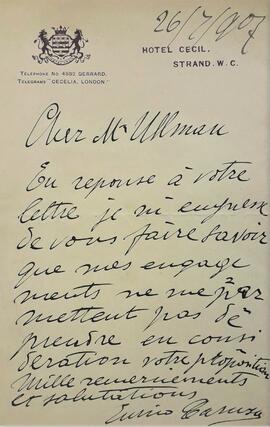 26/7/907
HOTEL CECIL.
STRAND. W.C.
TELEPHONE NO. 4682 GERRARD.
TELEGRAMS "CECELIA, LONDON."
Cher Mr Ullman
En reponse à votre
lettre je m'empresse
de vous faire savoir
que mes engage
ments ne me per
mettent pas de
prendre en consi
deration votre proposition
Mille remerciements
et salutations
Enrico Caruso